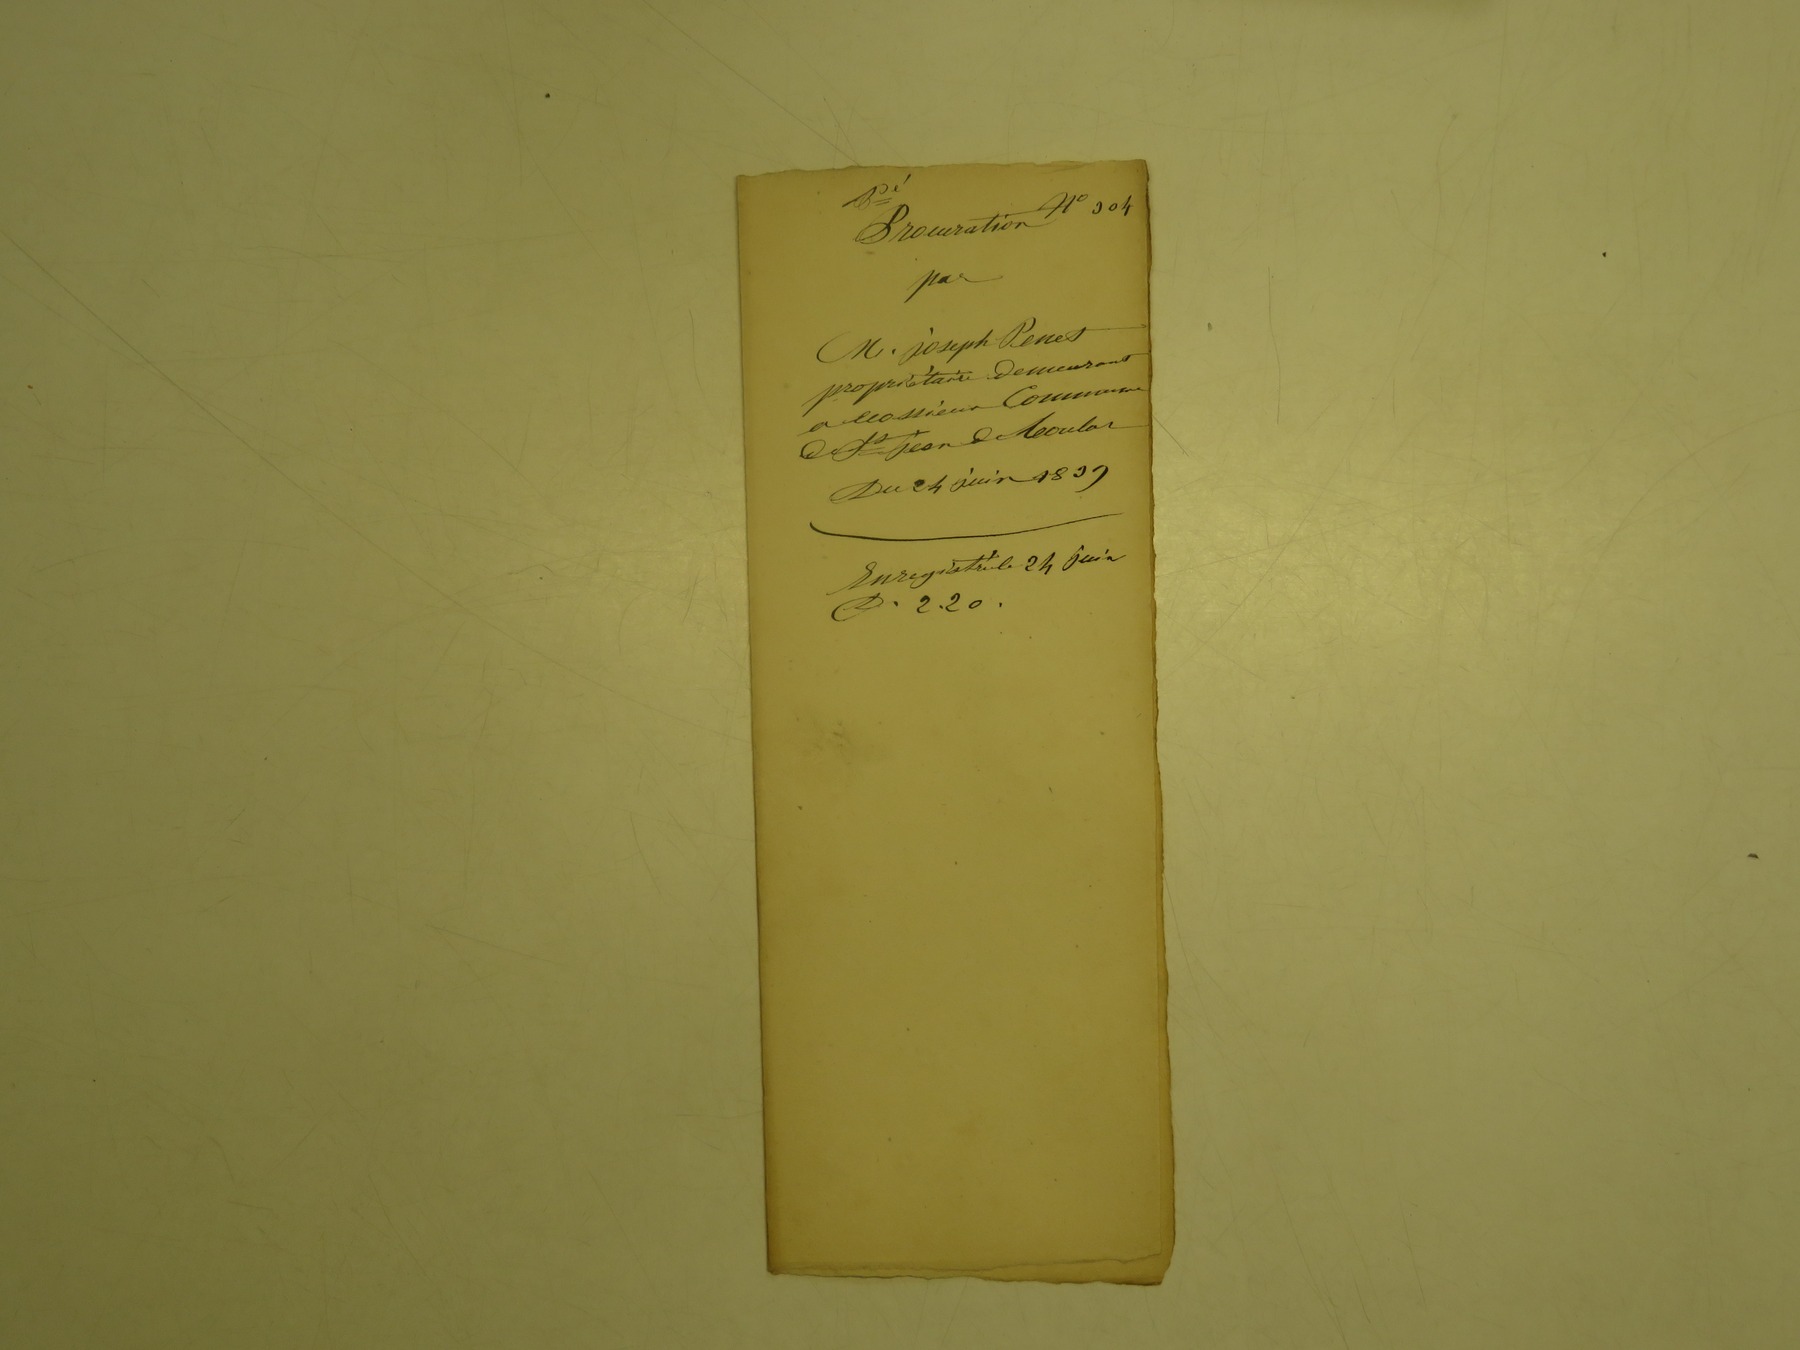 Pé
Procuration N° 304
par
M. joseph Penet
propriétaire demeurant
a Mossieux Commune
de St jean de Moular
Du 24 juin 1839
Enregistré le 24 juin
D. 2.20.